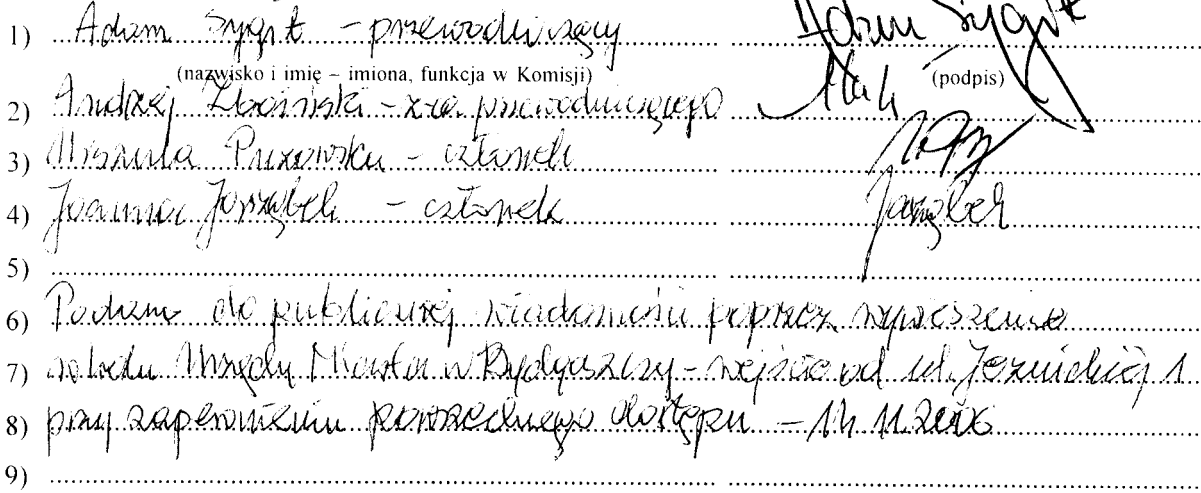 1) Adam Sygit - przewodniczący Adam Sygit
(nazwisko i imię – imiona, funkcja w Komisji) (podpis)
2) Andrzej - z-ca przewodniczącego
3) Urszula - członek
4) Joanna Jarząbek - członek Jarząbek
5)
6) Podano do publicznej wiadomości poprzez wywieszenie
7) Urzędu Miasta w Bydgoszczy - wejście od ul. Jezuickiej 1
8) przy zapewnieniu powszechnego dostępu - 11.2006
9)